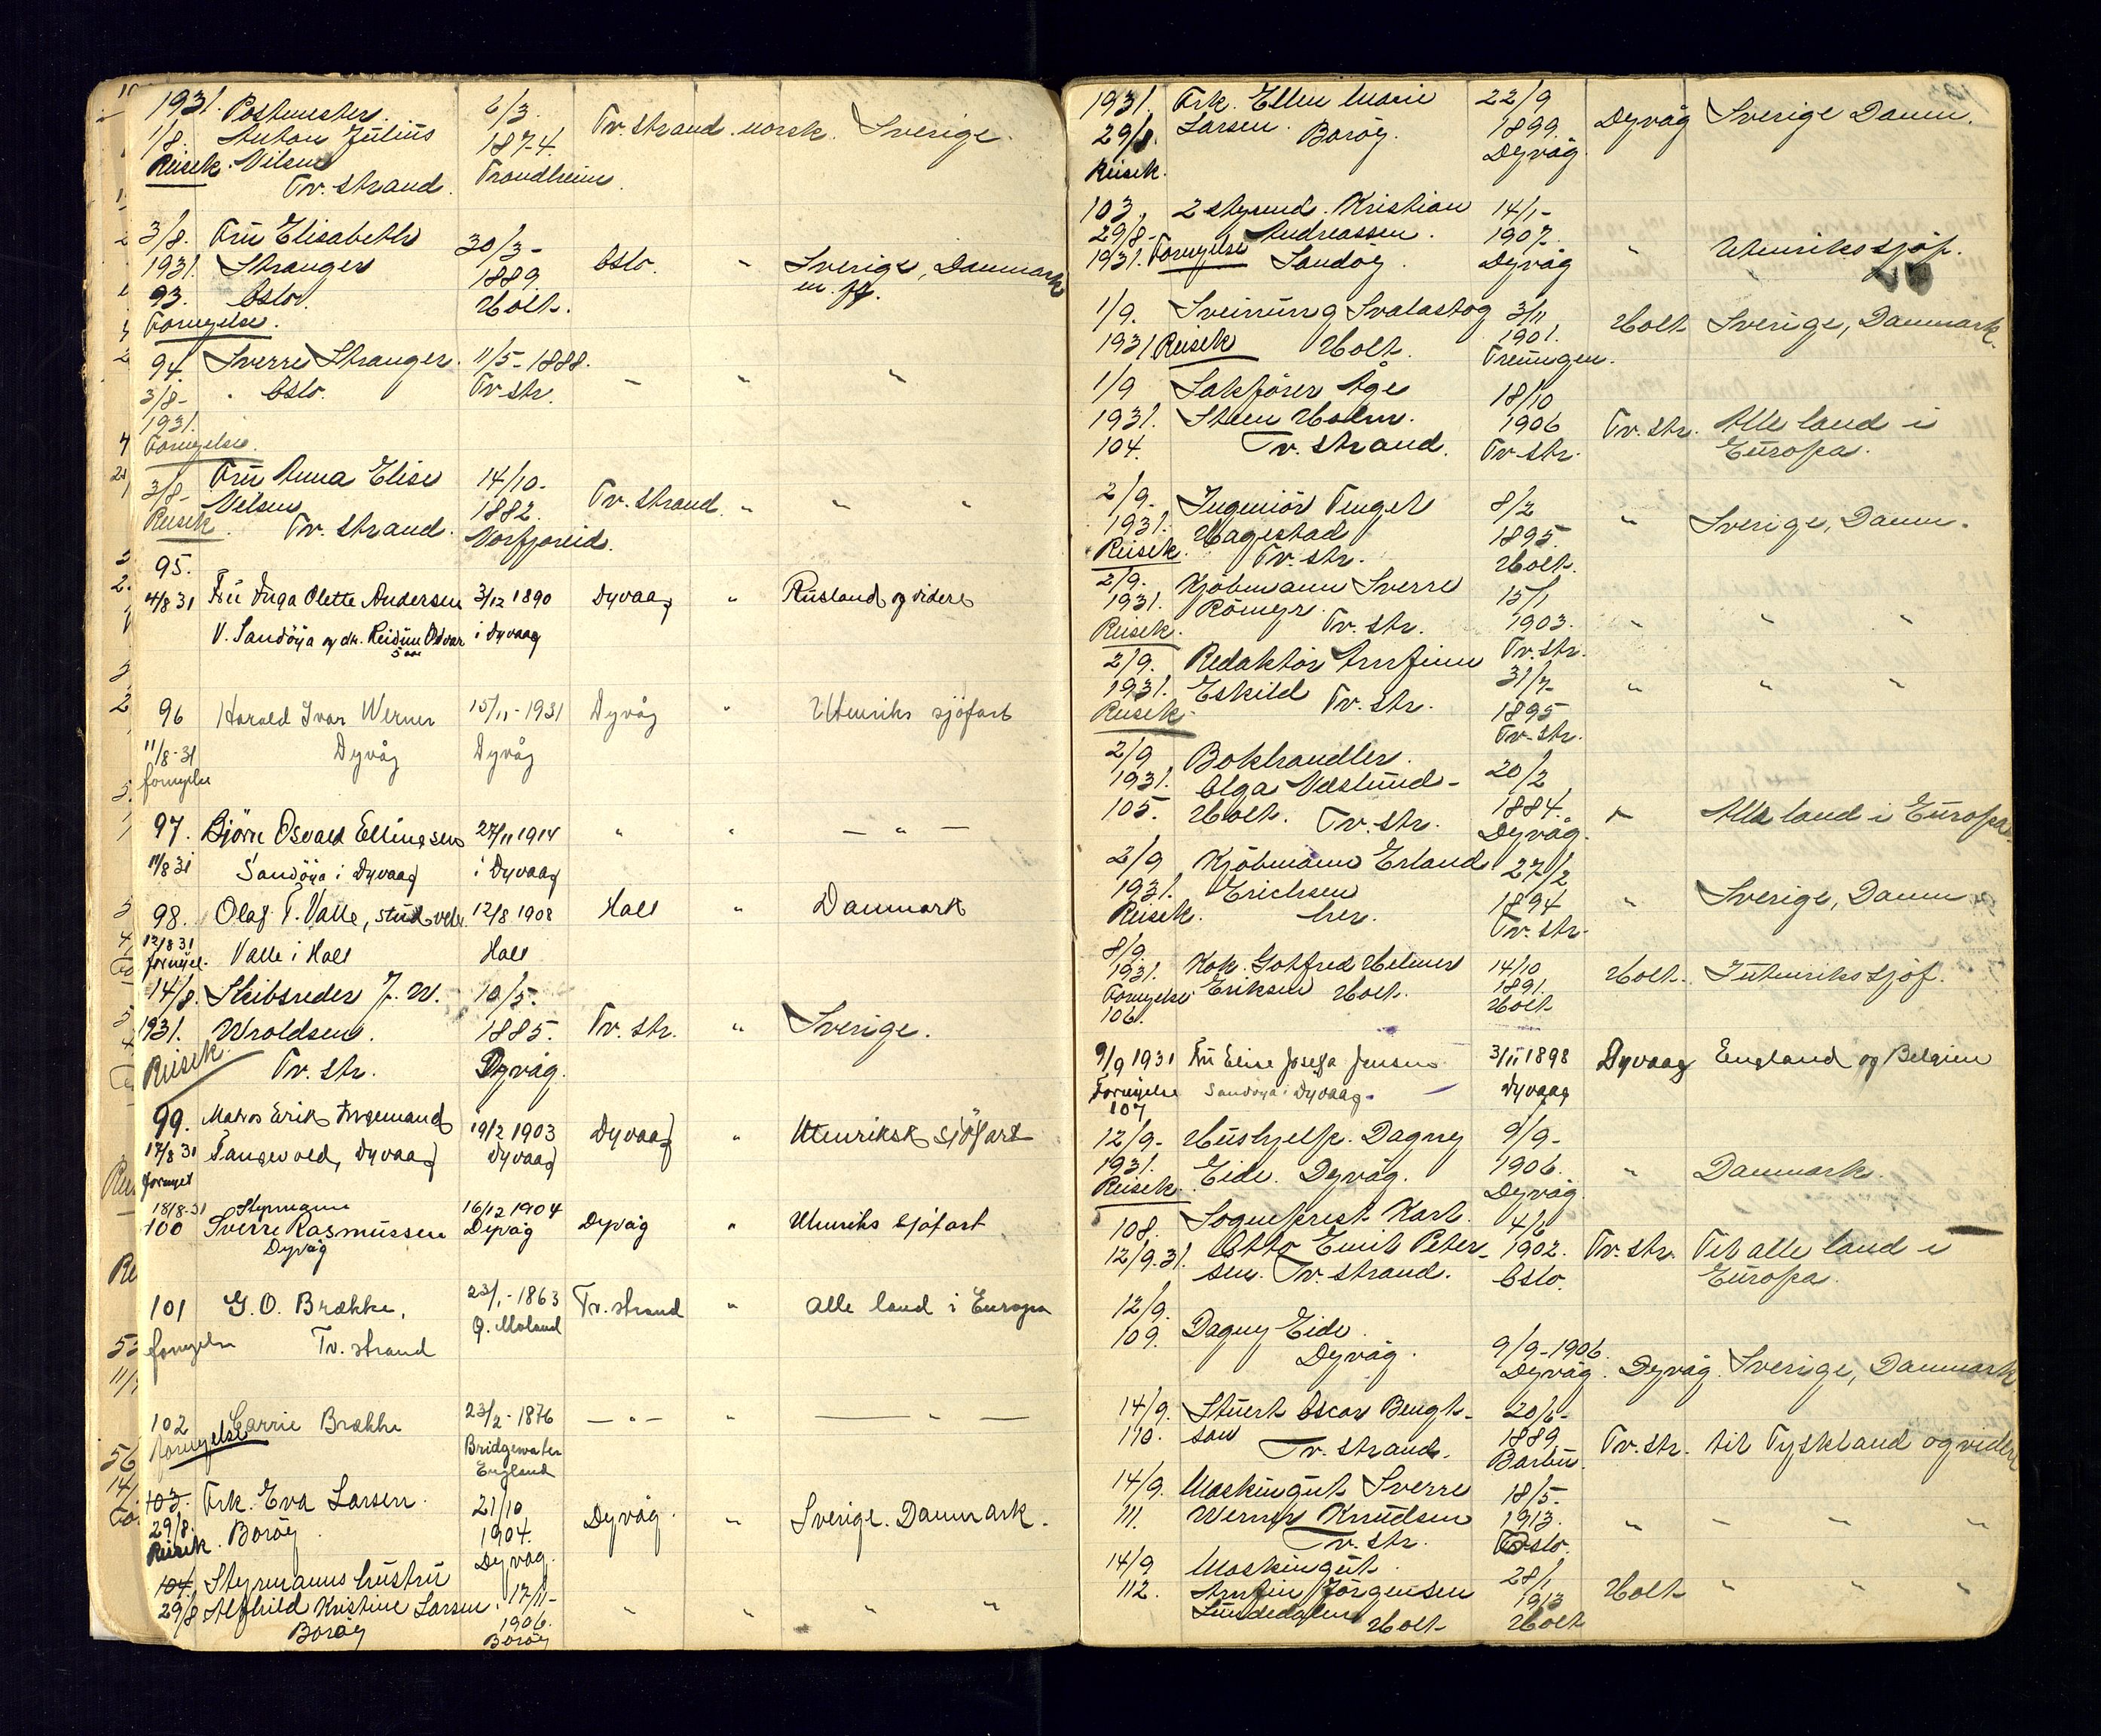 1931. Postmester 6/3.
1/8. Anton Julius 1874. Tv. strand. norsk. Sverige.
Reisek. Nilsen Trondheim.
Tv. strand.
3/8. Fru Elisabeth 30/3-
1931. Stranger 1889. Oslo. " Sverige, Danmark
93. Oslo. Holt. m. fl.
Fornyelse.
94. Sverre Stranger. 11/5-1888.
3/8- Oslo. Tv. str. - " "
1931.
Fornyelse.
Fru Anna Elise 14/10.
3/8- Nilsen 1882. Tv. strand. " " "
Reisek. Tv. strand.
95.
4/8 31 Fru Inga Olette Andersen 3/12 1890 Dyvaag " Rusland og videre
V. Sandöya og dr. Reidun Odvar i Dyvaag
96 Harald Ivar Werner 15/11-1931 Dyvåg " Utenriks sjöfart
11/8-31 Dyvåg Dyvåg
fornyelse
97. Björn Osvald Ellingsen 27/11 1914 " " — " —
11/8 31 Sandöya i Dyvaag i Dyvaag
98. Olaf T. Valle, stud. 12/8 1908 Holt " Danmark
12/8 31 Valle i Holt Holt
fornyel.
14/8. Skibsreder J. W. 10/5.
1931. Wroldsen. 1885. Tv. str. " Sverige.
Reisek. Tv. str. Dyvåg.
99. Matros Erik Ingemand 19/2 1903 Dyvaag " Utenriksk sjöfart
17/8 31 Tangevold, Dyvaag Dyvaag
fornyet
18/8-31 Styrmann 16/12 1904
100 Sverre Rasmussen Dyvåg Dyvåg " Utenriks sjöfart
Dyvåg
101 G. O. Brække, 23/1-1863 Tv. strand " alle land i Europa
fornyelse Tv. strand Ö. Moland
102 Carrie Brække 23/2-1876 — " — " — " —
fornyelse Bridgewater
England
103. Frk. Eva Larsen. 21/10
29/8. Boröy. 1904. Dyvåg. " Sverige. Danmark.
Reisek. Dyvåg.
104. Styrmanns hustru
29/8 Alfhild Kristine Larsen. 17/11- " " " "
Boröy 1906.
Boröy
1931. Frk. Ellen Marie 22/9
29/8. Larsen. Boröy. 1899. Dyvåg Sverige Danm.
Reisek. Dyvåg.
103, 2 styrmd. Kristian 14/1-
29/8- Andreassen. 1907. " Utenrikssjöf.
1931. Fornyelse Sandöy. Dyvåg
1/9. Sveinung Svalastog 3/11 Holt Sverige, Danmark.
1931 Reisek Holt. 1901.
Treungen.
1/9 Sakförer Åge 18/10
1931. Steen Holm. 1906 Tv. str. Alle land i
104. Tv. strand. Tv. str. Europa.
2/9. Ingeniör Tengel 8/2
1931. Hagestad 1895. " Sverige, Danm.
Reisek. Tv. str. Holt.
2/9. Kjöbmann Sverre 15/1
1931. Römyr. 1903. " " "
Reisek. Tv. str. Tv. str.
2/9. Redaktör Arnfinn 31/7-
1931. Eskild Tv. str. 1895 " " "
Reisek. Tv. str.
2/9 Bokhandler.
1931. Olga Næslund- 20/2
105. Holt. Tv. str. 1884. " Alle land i Europa.
Dyvåg.
2/9 Kjöbmann Erland 27/2
1931. Erichsen 1894 " Sverige, Danm
Reisek. her. Tv. str.
8/9.
1931. Kok. Gotfred Helmer 14/10 Holt. Inutenrikssjöf.
Fornyelse Eriksen Holt. 1891.
106. Holt
9/9 1931 Fru Elise Josefa Jensen 3/11 1898 Dyvaag England og Belgien
Fornyelse Sandöya i Dyvaag. Dyvaag
107
12/9- Hushjelp. Dagny 9/9-
1931. Eide. Dyvåg. 1906. " Danmark.
Reisek. Dyvåg.
108. Sogneprest Karl 4/6
12/9.31. Otto Emil Peter- 1902. Tv. str. Til alle land i
sen. Tv. strand. Oslo. Europa.
12/9.
109. Dagny Eide. 9/9-1906.
Dyvåg. Dyvåg. Dyvåg. Sverige, Danmark
14/9. Stuert Oscar Bengt- 20/6-
110. son 1889 Tv. str. til Tyskland og videre
Tv. strand. Barbu.
14/9. Maskingut Sverre 18/5.
111. Werner Knudsen 1913. " " " "
Tv. str. Oslo.
14/9 Maskingut. 28/1
112. Arnfin Jörgensen 1913 Holt " " "
Lundedalen Holt Holt